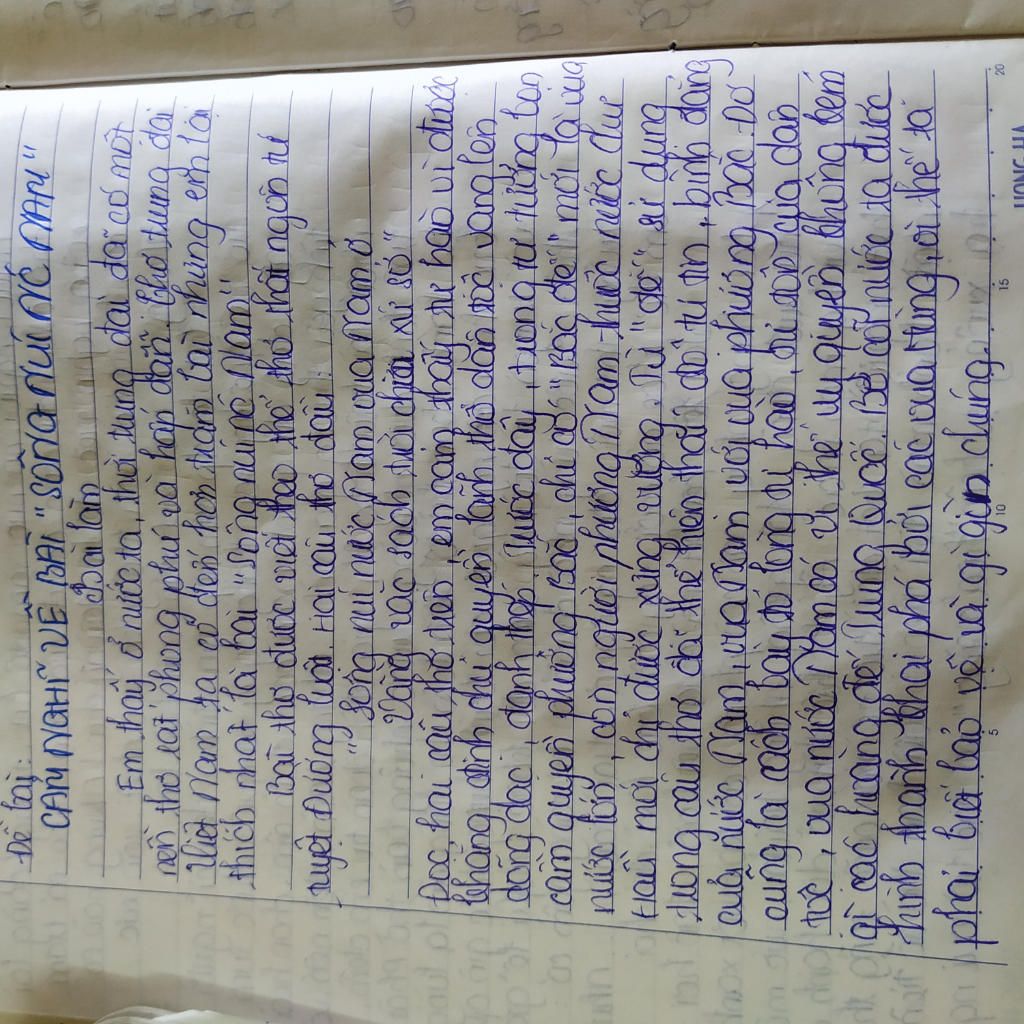 Đề bài:
CẢM NGHĨ VỀ BÀI "SÔNG NÚI NC NAM"
Bài làm
Em thấy ở nước ta, thời trung đại đã có một
nền thơ rất phong phú và hấp dẫn. Thơ trung đại
Việt Nam ta có đến hơn trăm bài nhưng em lại
thích nhất là bài "Sông núi nước Nam"
Bài thơ được viết theo thể thơ thất ngôn tứ
tuyệt Đường luật. Hai câu thơ đầu
"Sông núi nước Nam vua Nam ở
Vằng vặc sách trời chia xứ sở"
Đọc hai câu thơ trên, em cảm thấy tự hào vì được
khẳng định chủ quyền lãnh thổ dân tộc vang lên
dõng dạc, danh thép. Trước đây, trong tư tưởng bọn
cầm quyền phương Bắc, chỉ có "Bắc đế" mới là vua
nước lớn, còn người phương Nam thuộc nước chư
Hầu mới chỉ được xưng vương. Từ "đế" sử dụng
trong câu thơ đã thể hiện thái độ tự tin, bình đẳng
của nước Nam, vua Nam với vua phương Bắc. Đó
cũng là cách bày tỏ lòng tự hào, tự tôn của dân
tộc, vua nước Nam có vị thế uy quyền không kém
gì các hoàng đế Trung Quốc. Bờ cõi nước ta được
hình thành khai phá bởi các vua Hùng, vì thế ta
phải biết bảo vệ và gì giữ chúng.
5 10 15 20
HONG HA